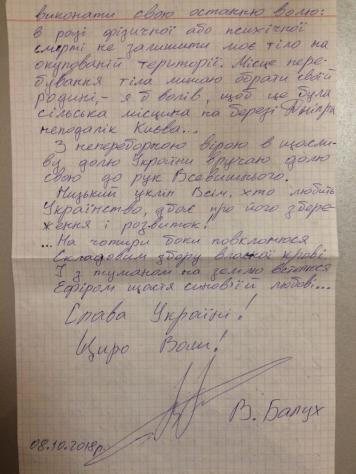 виконати свою останню волю:
В разі фізичної або психічної
смерті не залишити моє тіло на
окупованій території. Місце пере-
бування тіла лишаю обрати своїй
родині, – я б волів, щоб це була
сільська місцина на березі Дніпра
неподалік Києва...
З непереборною вірою в щасли-
ву долю України вручаю долю
свою до рук Всевишнього.
Низький уклін Всім, хто любить
Українство, дбає про його збере-
ження і розвиток!
...На чотири боки поклонюся
Складовим збору власної крові
І з туманом на землю
Ефіром щастя синовньої любові...
Слава Україні!
Щиро Ваш!
В. Балух
08.10.2018р